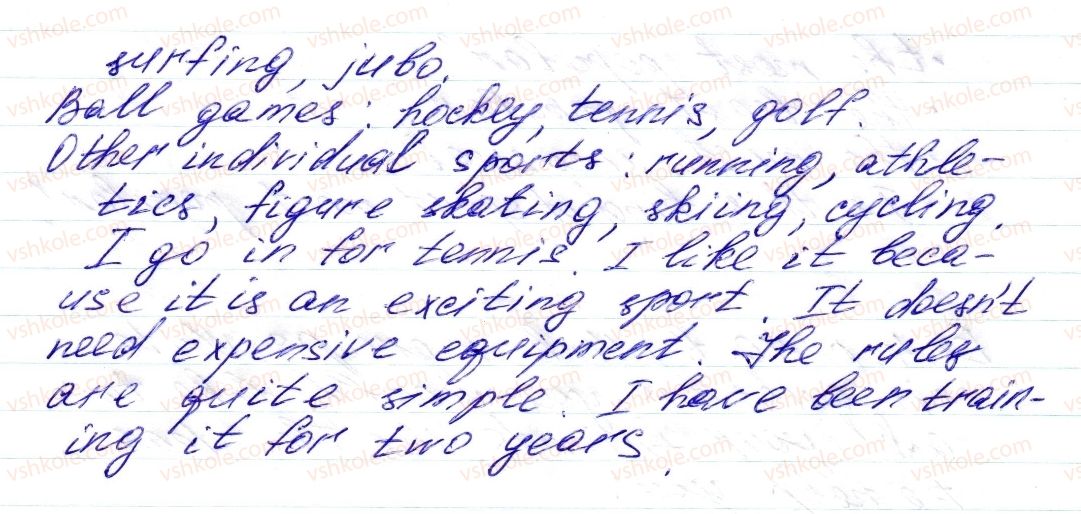 surfing, jubo.
Ball games: hockey, tennis, golf.
Other individual sports: running, athle-
tics, figure skating, skiing, cycling.
I go in for tennis. I like it beca-
use it is an exciting sport. It doesn't
need expensive equipment. The rules
are quite simple. I have been train-
ing it for two years.